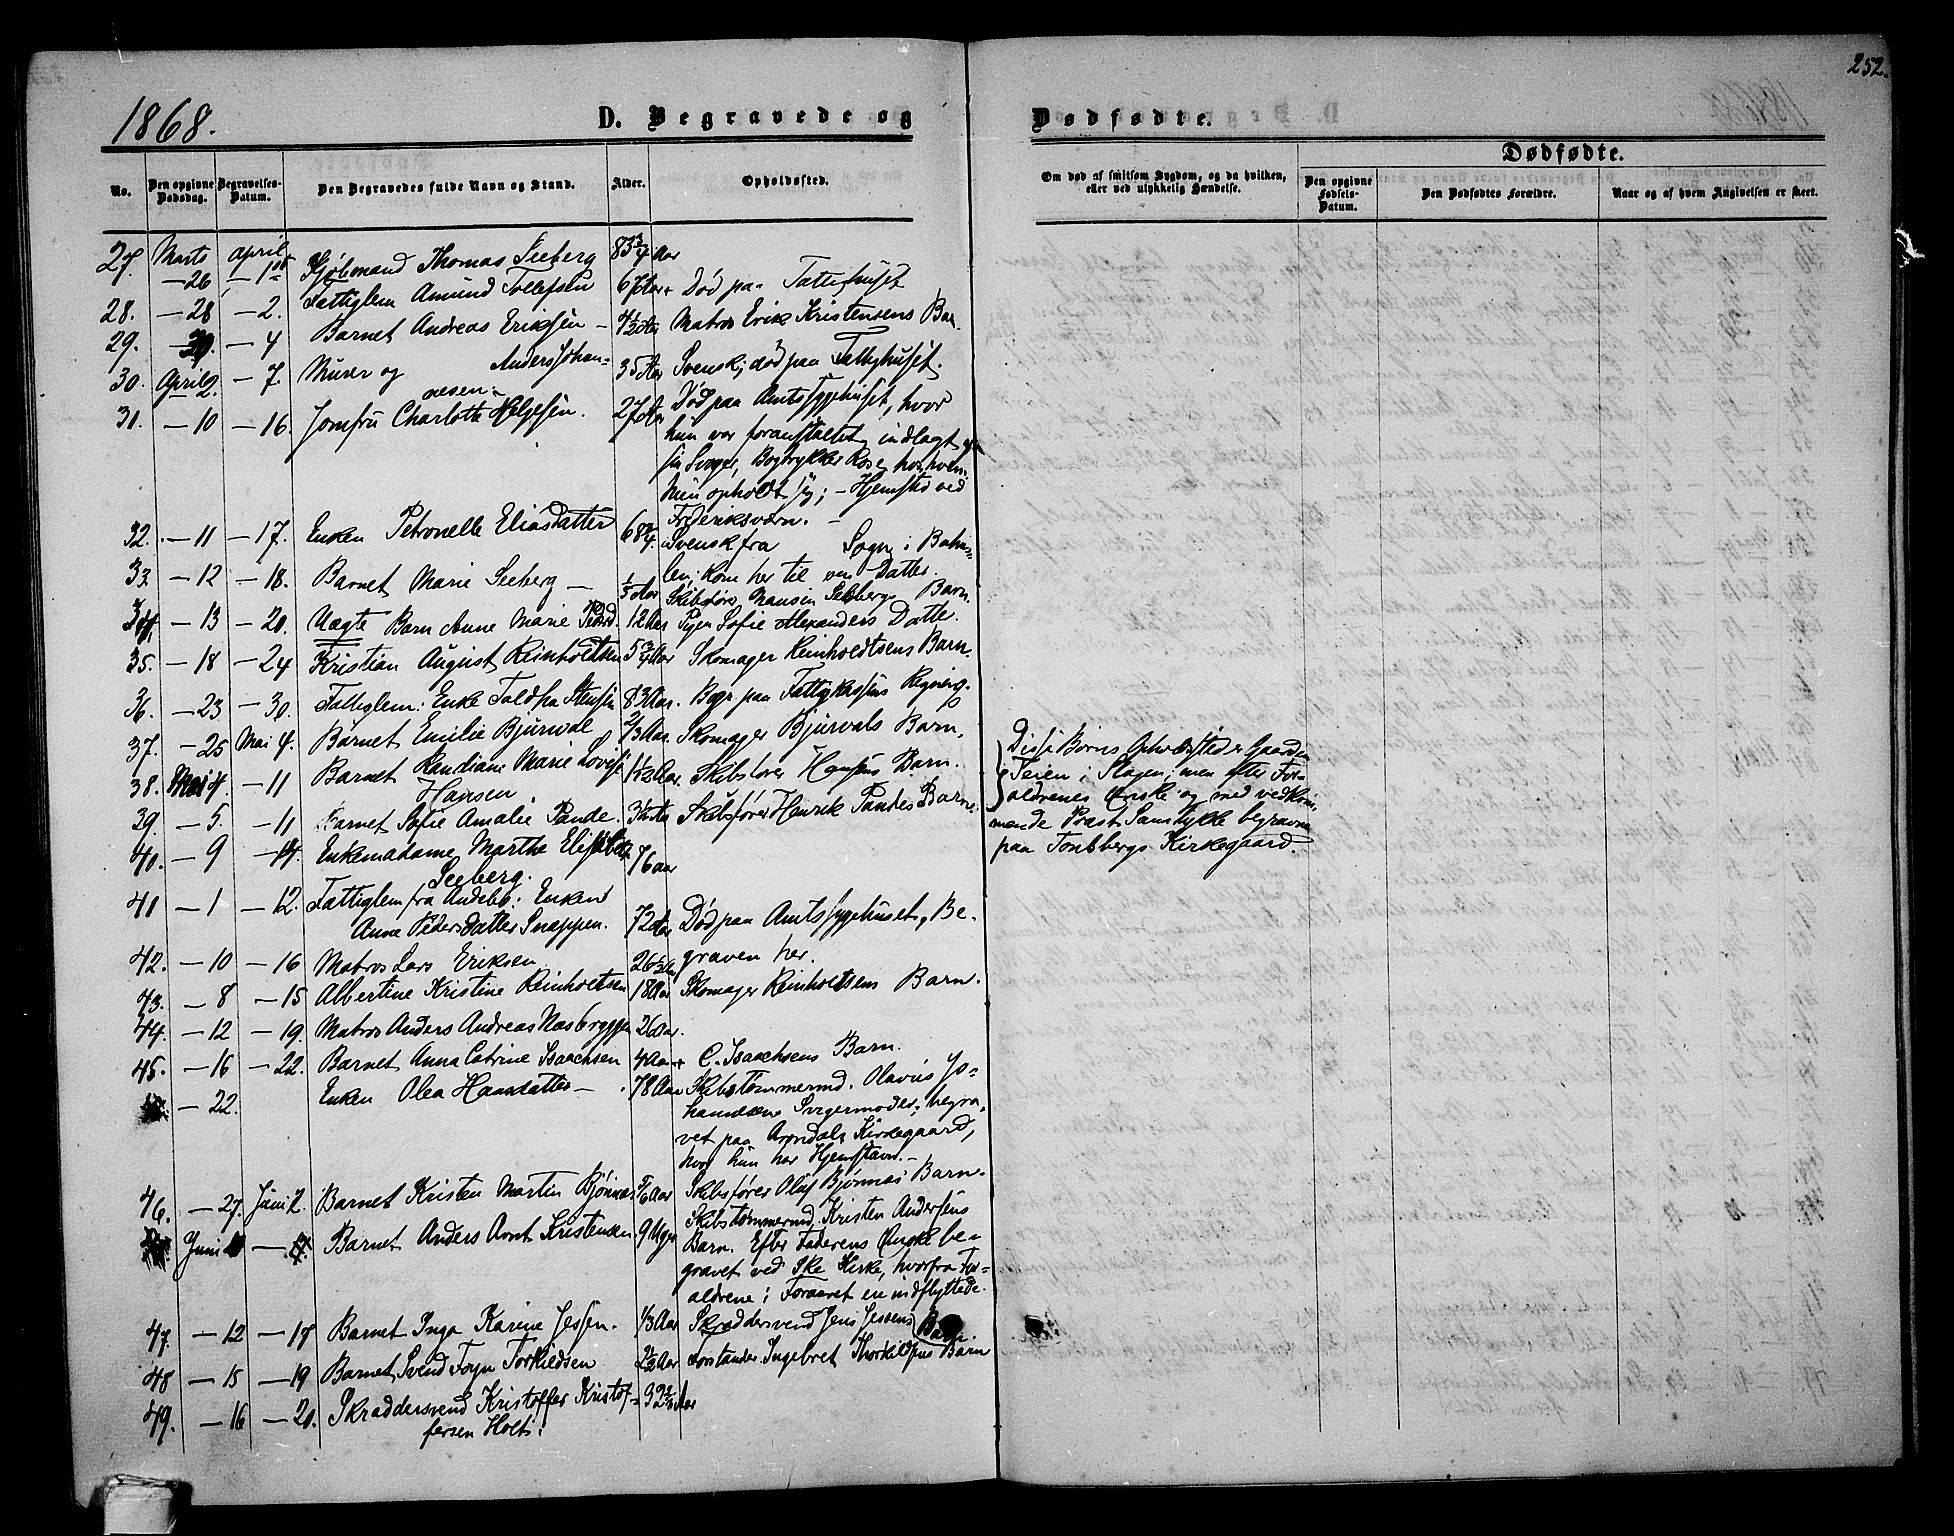 252.
1868.
D. Begravede og Dødfødte.
Dødfødte.
No. Den opgivne Dødsdag. Begravelses-Datum. Den Begravedes fulde Navn og Stand. Alder. Opholdssted. Om død af smitsom Sygdom, og da hvilken, eller ved ulykkelig Hændelse. Den opgivne Fødsels-Datum. Den Dødfødtes Forældre. Naar og af hvem Angivelsen er skeet.
27. Marts April
— 26 — 1ste Kjøbmand Thomas Seeberg 83 3/4 Aar
28. — 28 — 2. Fattiglem Amund Tollefsen 67 Aar Død paa Fattighuset
29. — 4 Barnet Andreas Eriksen — 4 1/2 Aar Matros Erik Kristensens Barn.
30. April 2. — 7. Murer og Anders Johan-
nesen. 35 Aar Svensk; død paa Fattighuset.
31. — 10 — 16. Jomfru Charlotte Helgesen. 27 Aar Død paa Amtssygehuset, hvor
hun var foranstaltet indlagt af
sin Svoger, Bogtrykker Rose, hos hvem
hun opholdt sig; — Hjemsted ved
Frederiksværn. —
32. — 11 — 17. Enken Petronelle Eliasdatter 68 3/4 Svensk fra Sogn i Bahus-
len; kom her til en Datter.
33. — 12 — 18. Barnet Marie Seeberg — 1/3 Aar Skibsfører Seebergs Barn
34. — 13 — 20. Uægte Barn Anne Marie 12 Aar Pigen Sofie Alexanders Datter.
35. — 18 — 24 Kristian August Reinholdtsen 5 3/4 Aar Skomager Reinholdtsens Barn.
36. — 23 — 30. Fattiglem: Enke 83 Aar. Begr. paa Fattigkassens Regning.
37. — 25 Mai 4. Barnet Emilie Bjurval 2/3 Aar. Skomager Bjurvals Barn.
38. Mai 4 — 11 Barnet Randiane Marie Lovise
Hansen 1 1/12 Aar Skibsfører Hansens Barn.
39. — 5. — 11 Barnet Sofie Amalie Pande. Skibsfører Henrik Pandes Barn.
Disse Børns Opholdssted er Gaarden
Teien i Slagen; men efter For-
ældrenes Ønske og med vedkom-
mende Præst Samtykke begravne
paa Tønsbergs Kirkegaard.
40. — 9 — 14. Enkemadame Marthe Elisabeth
Seeberg. 76 aar
41 — 1 — 12. Fattiglem fra Andebo: Enken
Anne Pedersdatter Snappen. 72 Aar Død paa Amtssygehuset, Be-
graven her.
42. — 10 — 16 Matros Lars Eriksen 26 1/2 Aar
43. — 8 — 15 Albertine Kristine Reinholtsen 18 Aar Skomager Reinholtsens Barn.
44. — 12 — 19. Matros Anders Andreas Næsbryggen 26 Aar.
45. — 16 — 22. Barnet Anna Catrine Isaachsen 4 Aar C. Isaachsens Barn.
— 22. Enken Olea Hansdatter — 78 Aar Skibstømmermd. Olavus Jo-
hannesens Svigermoder; begra-
vet paa Arendals Kirkegaard,
hvor hun har Hjemstavn. —
46. — 27. Juni 2. Barnet Kristen Martin Bjønnæs 5/6 Aar Skibsfører Oluf Bjønnæs' Barn.
Juni — Barnet Anders Arnt Kristensen. 9 Uger Skibstømmermd. Kristen Andersens
Barn. Efter Faderens Ønske be-
gravet ved Eke Kirke, hvorfra For-
ældrene i Foraaret ere indflyttede.
47. — 12 — 17 Barnet Inga Karine Jessen. 1/3 Aar Skræddersvend Jens Jessens
Barn.
48 — 15 — 19 Barnet Svend Foyn Torkildsen 2 1/2 Aar Forstander Ingebret Thorkildsens Barn
49. — 16 — 20. Skræddersvend Kristoffer Kristof-
fersen Holt. 39 2/3 Aar